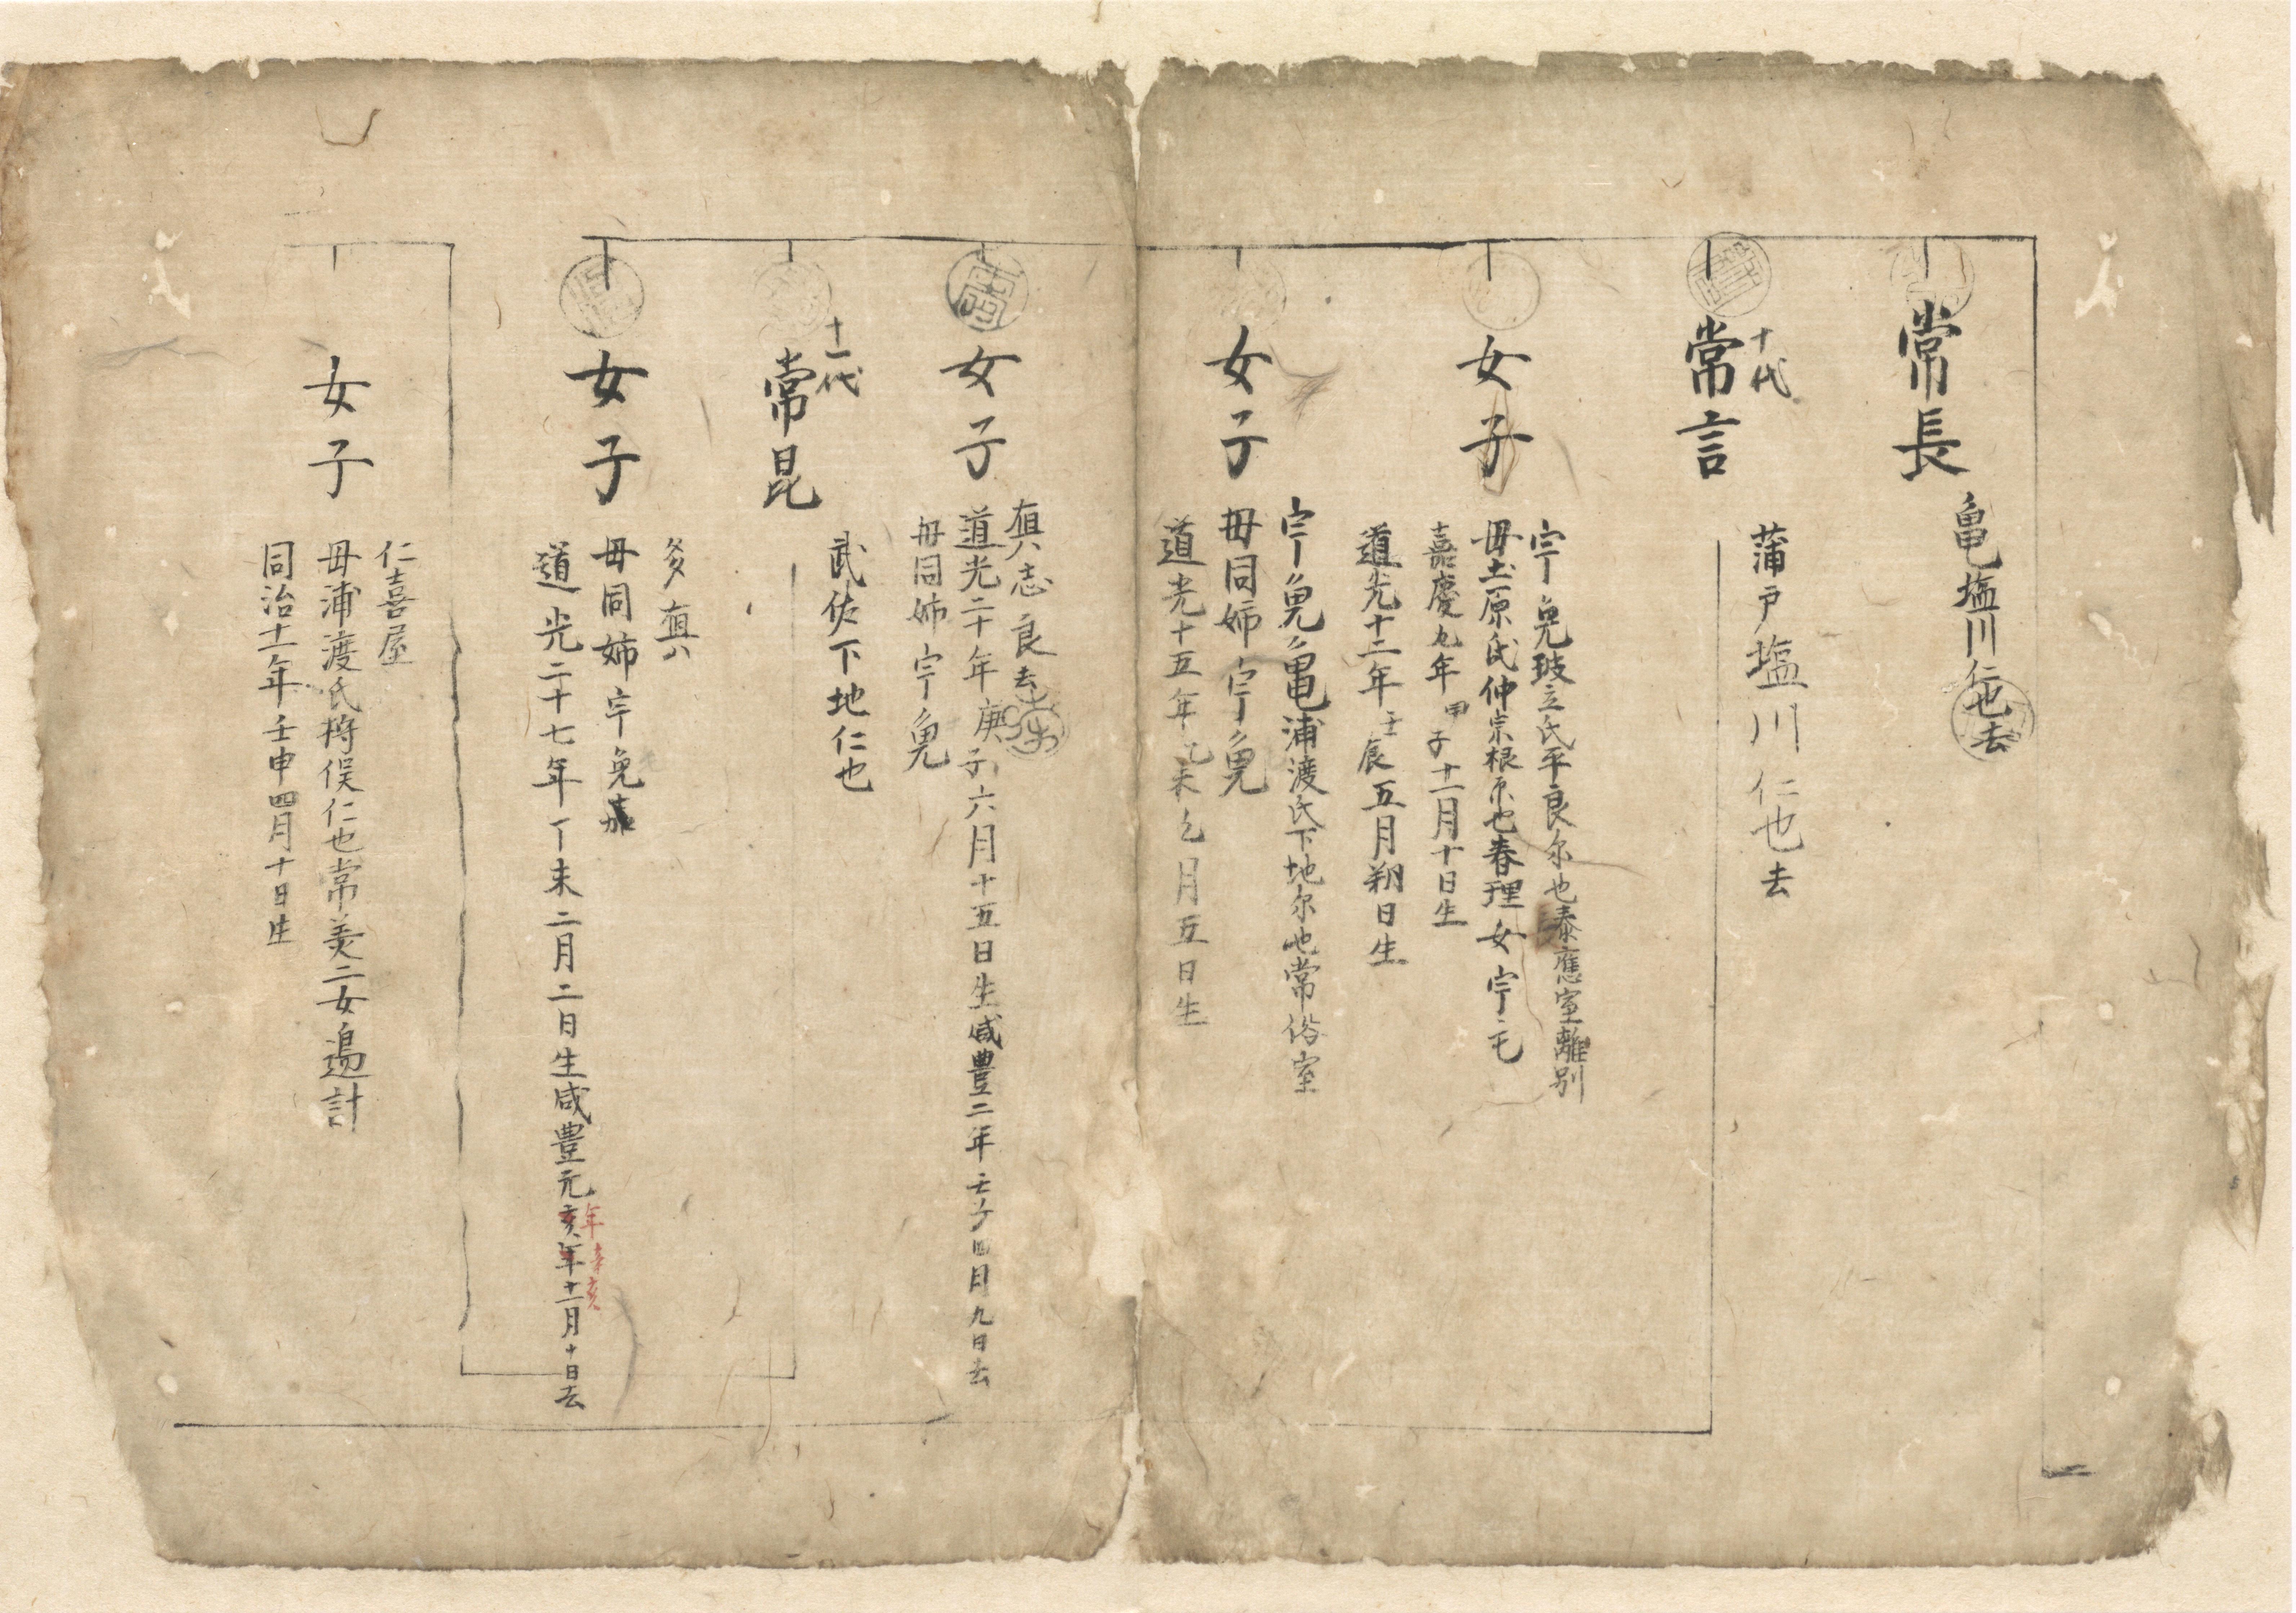 常長
亀塩川仁也去
十代
常言
蒲戸塩川仁也去
女子
宇免玻立氏平良尓也泰應室離別
毋土原氏仲宗根尓也春理女宇毛
嘉慶九年甲子十一月十日生
道光十二年壬辰五月朔日生
女子
宇免亀浦渡氏下地尓也常俗室
毋同姉宇免
道光十五年乙未七月五日生
女子
真志良去
道光二十年庚子六月十五日生咸豊二年壬子四月九日去
毋同姉宇免
十一代
常昆
武佐下地仁也
女子
多真
毋同姉宇免嘉
道光二十七年丁未二月二日生咸豊元亥年十一月十日去
年辛亥
女子
仁喜屋
毋浦渡氏将俣仁也常美二女過計
同治十一年壬申四月十日生